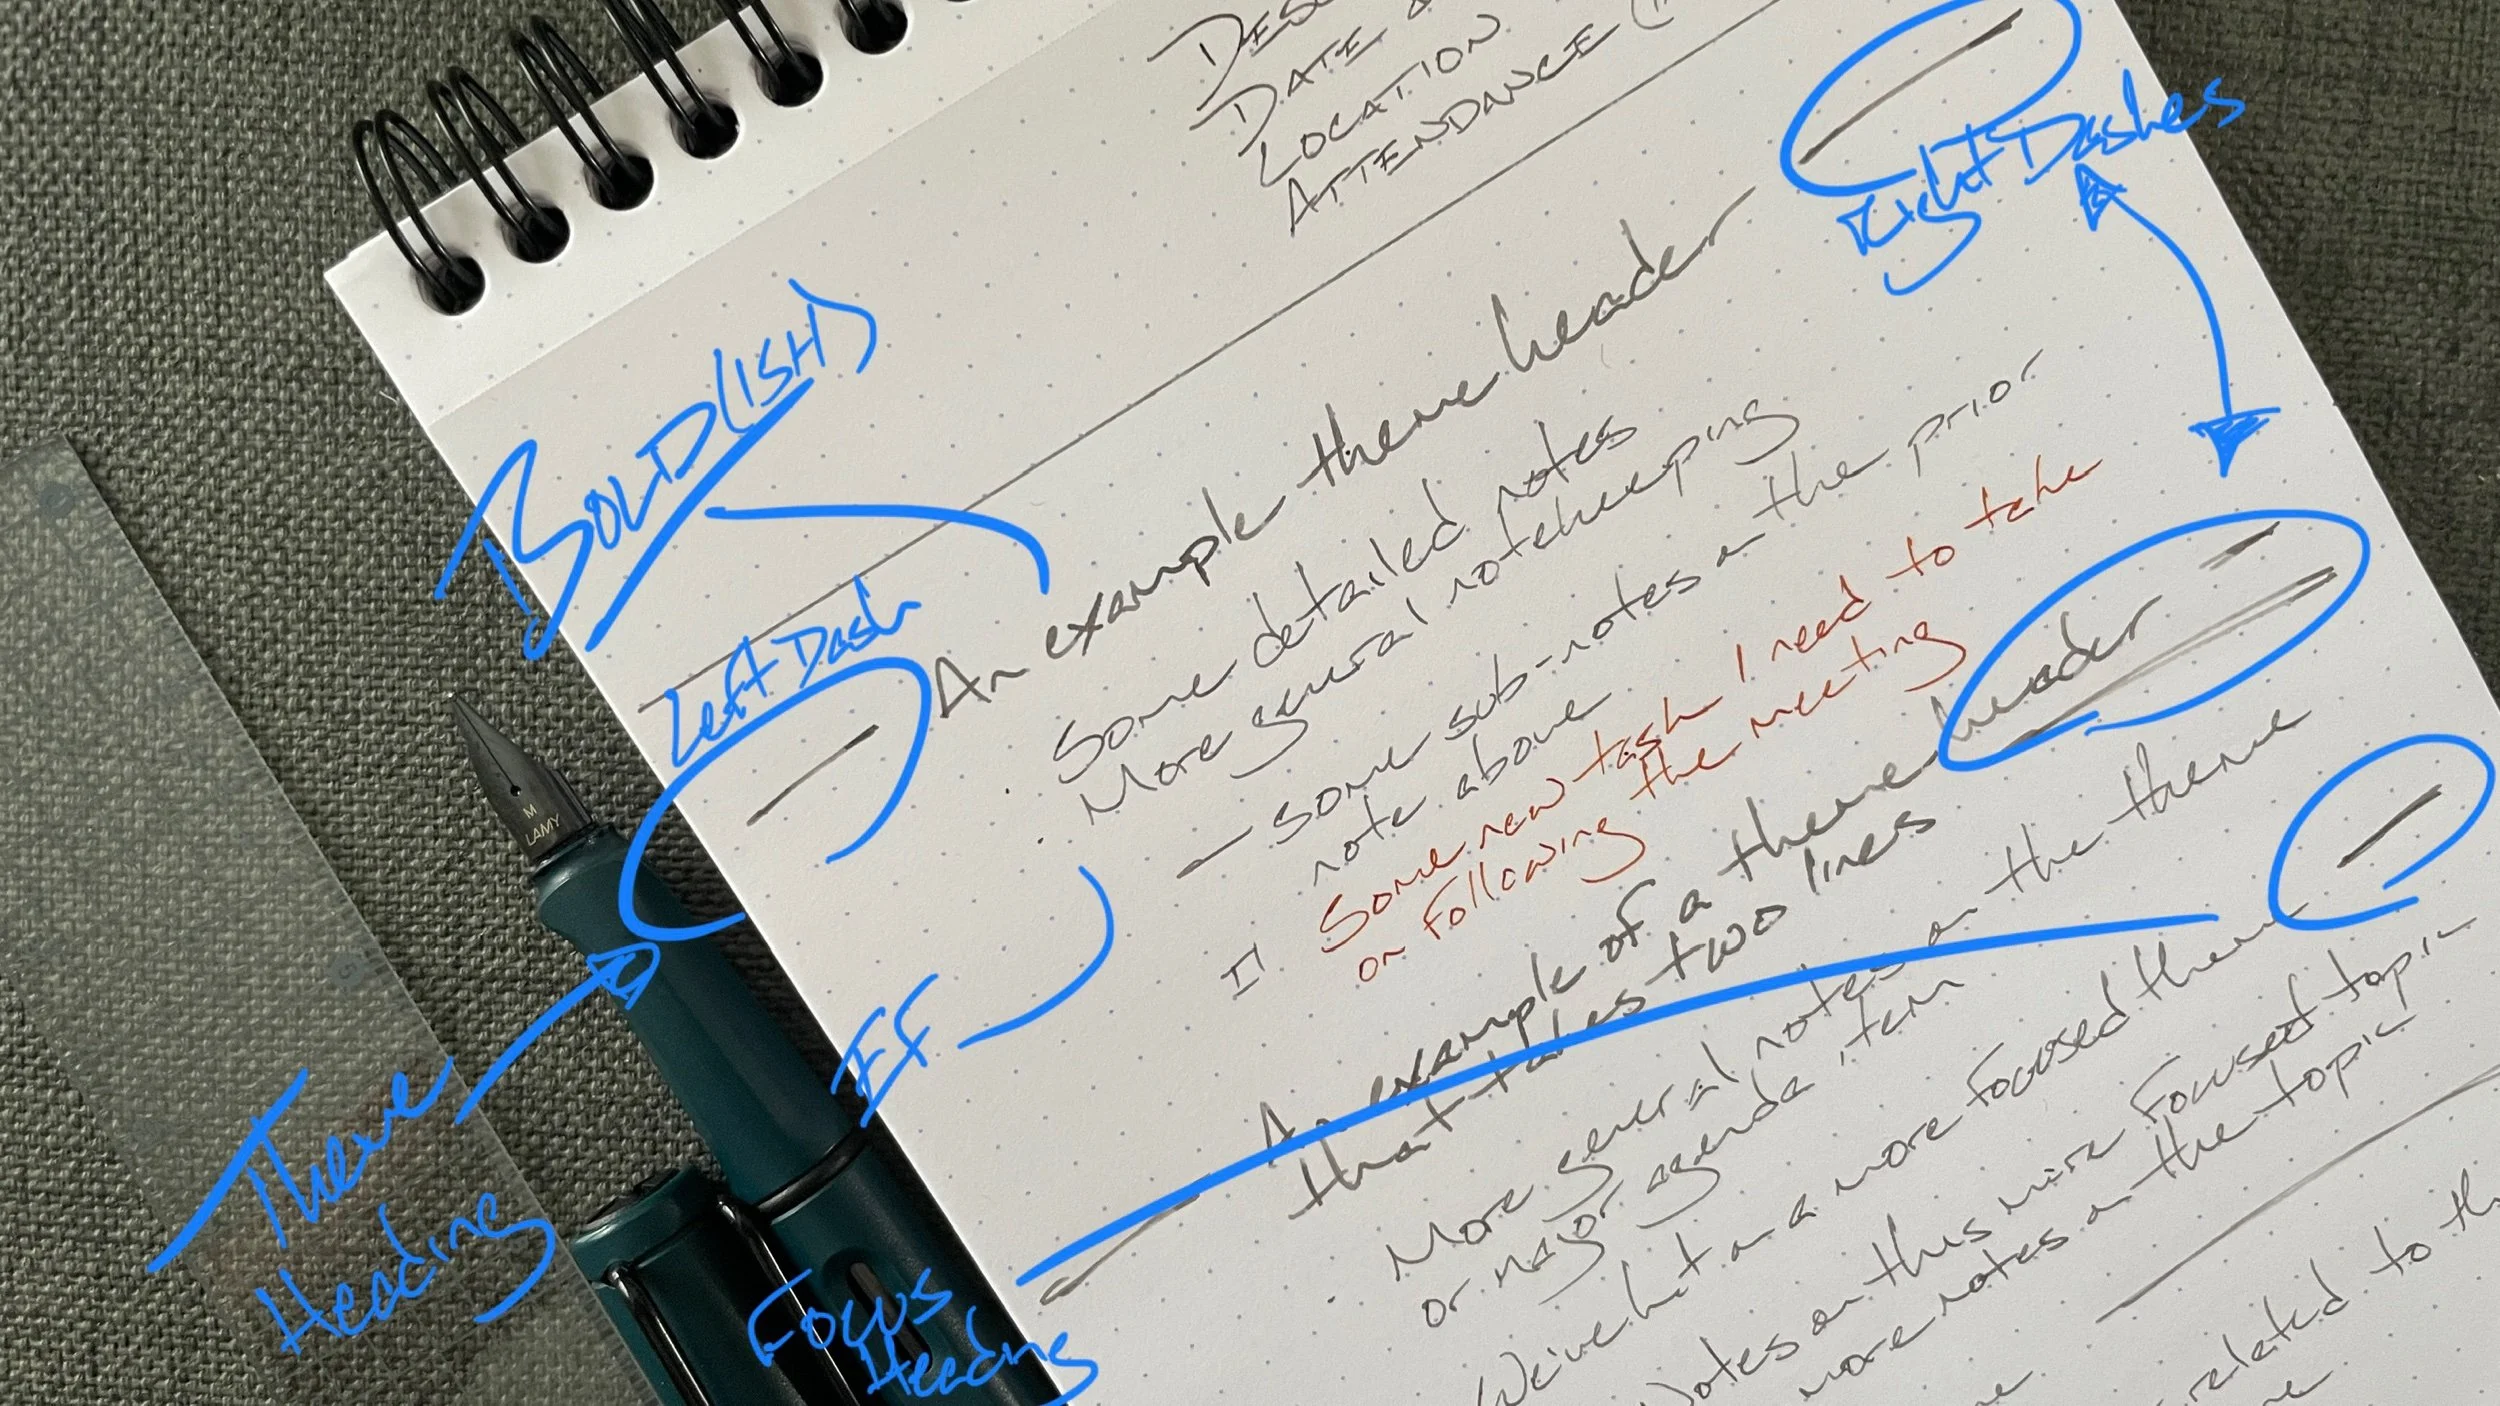 DATE &
LOCATION
ATTENDANCE (
Right Dashes
BOLD(ISH)
Left Dash
An example theme header
Some detailed notes
More general notekeeping
— some sub-notes on the prior
note above
Some new task I need to take
on following the meeting
An example of a theme header
that takes two lines
More general notes on the theme
or major agenda item
We've hit on a more focused
Notes on this more focused topic
more notes on the topic
related to
EF
Theme
Heading
Focus
Heading
M
LAMY